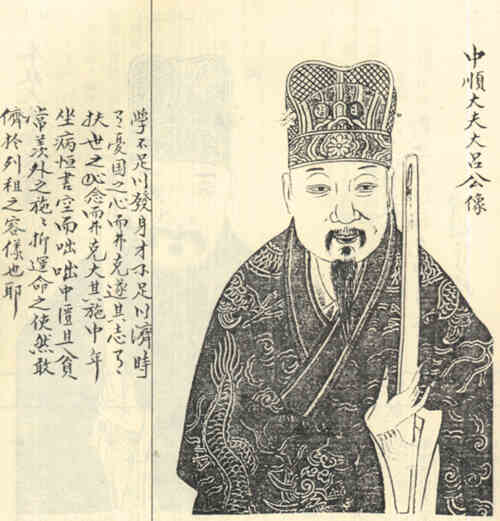 中順大夫大呂公像
學不足以發身才不足以濟時
憂国之心而弗克遂其志
扶世之心念而弗克大其施中年
坐病恒書空而咄咄中且貧
常羨外之施〻折運命之使然敢
儕於列祖之容樣也耶